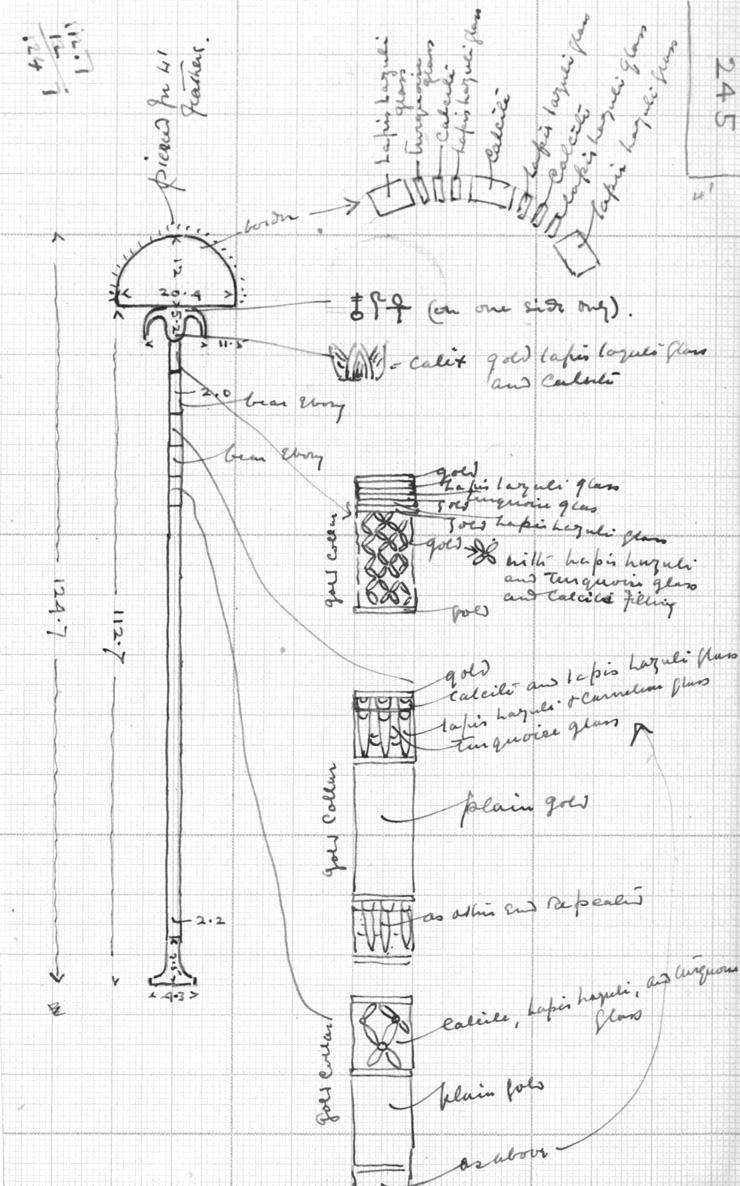 245
pierced for 41
feathers.
Lapis lazuli
glass
turquoise
glass
Calcite
Lapis lazuli glass
Calcite
Lapis lazuli glass
Calcite
Lapis lazuli glass
lapis lazuli glass
border
12.1
20.4
(on one side only).
2.5
11.5
= calix gold lapis lazuli glass
and calcite
2.0
bear Ebony
bear Ebony
gold
Lapis lazuli glass
turquoise glass
gold
gold Lapis lazuli glass
gold
with Lapis lazuli
and turquoise glass
and calcite filling
gold
gold collar
124.7
112.7
gold
Calcite and lapis lazuli glass
lapis lazuli & carnelian glass
turquoise glass
gold collar
plain gold
as other end repeated
2.2
4.3
Calcite, lapis lazuli, and turquoise
glass
gold collar
plain gold
as above